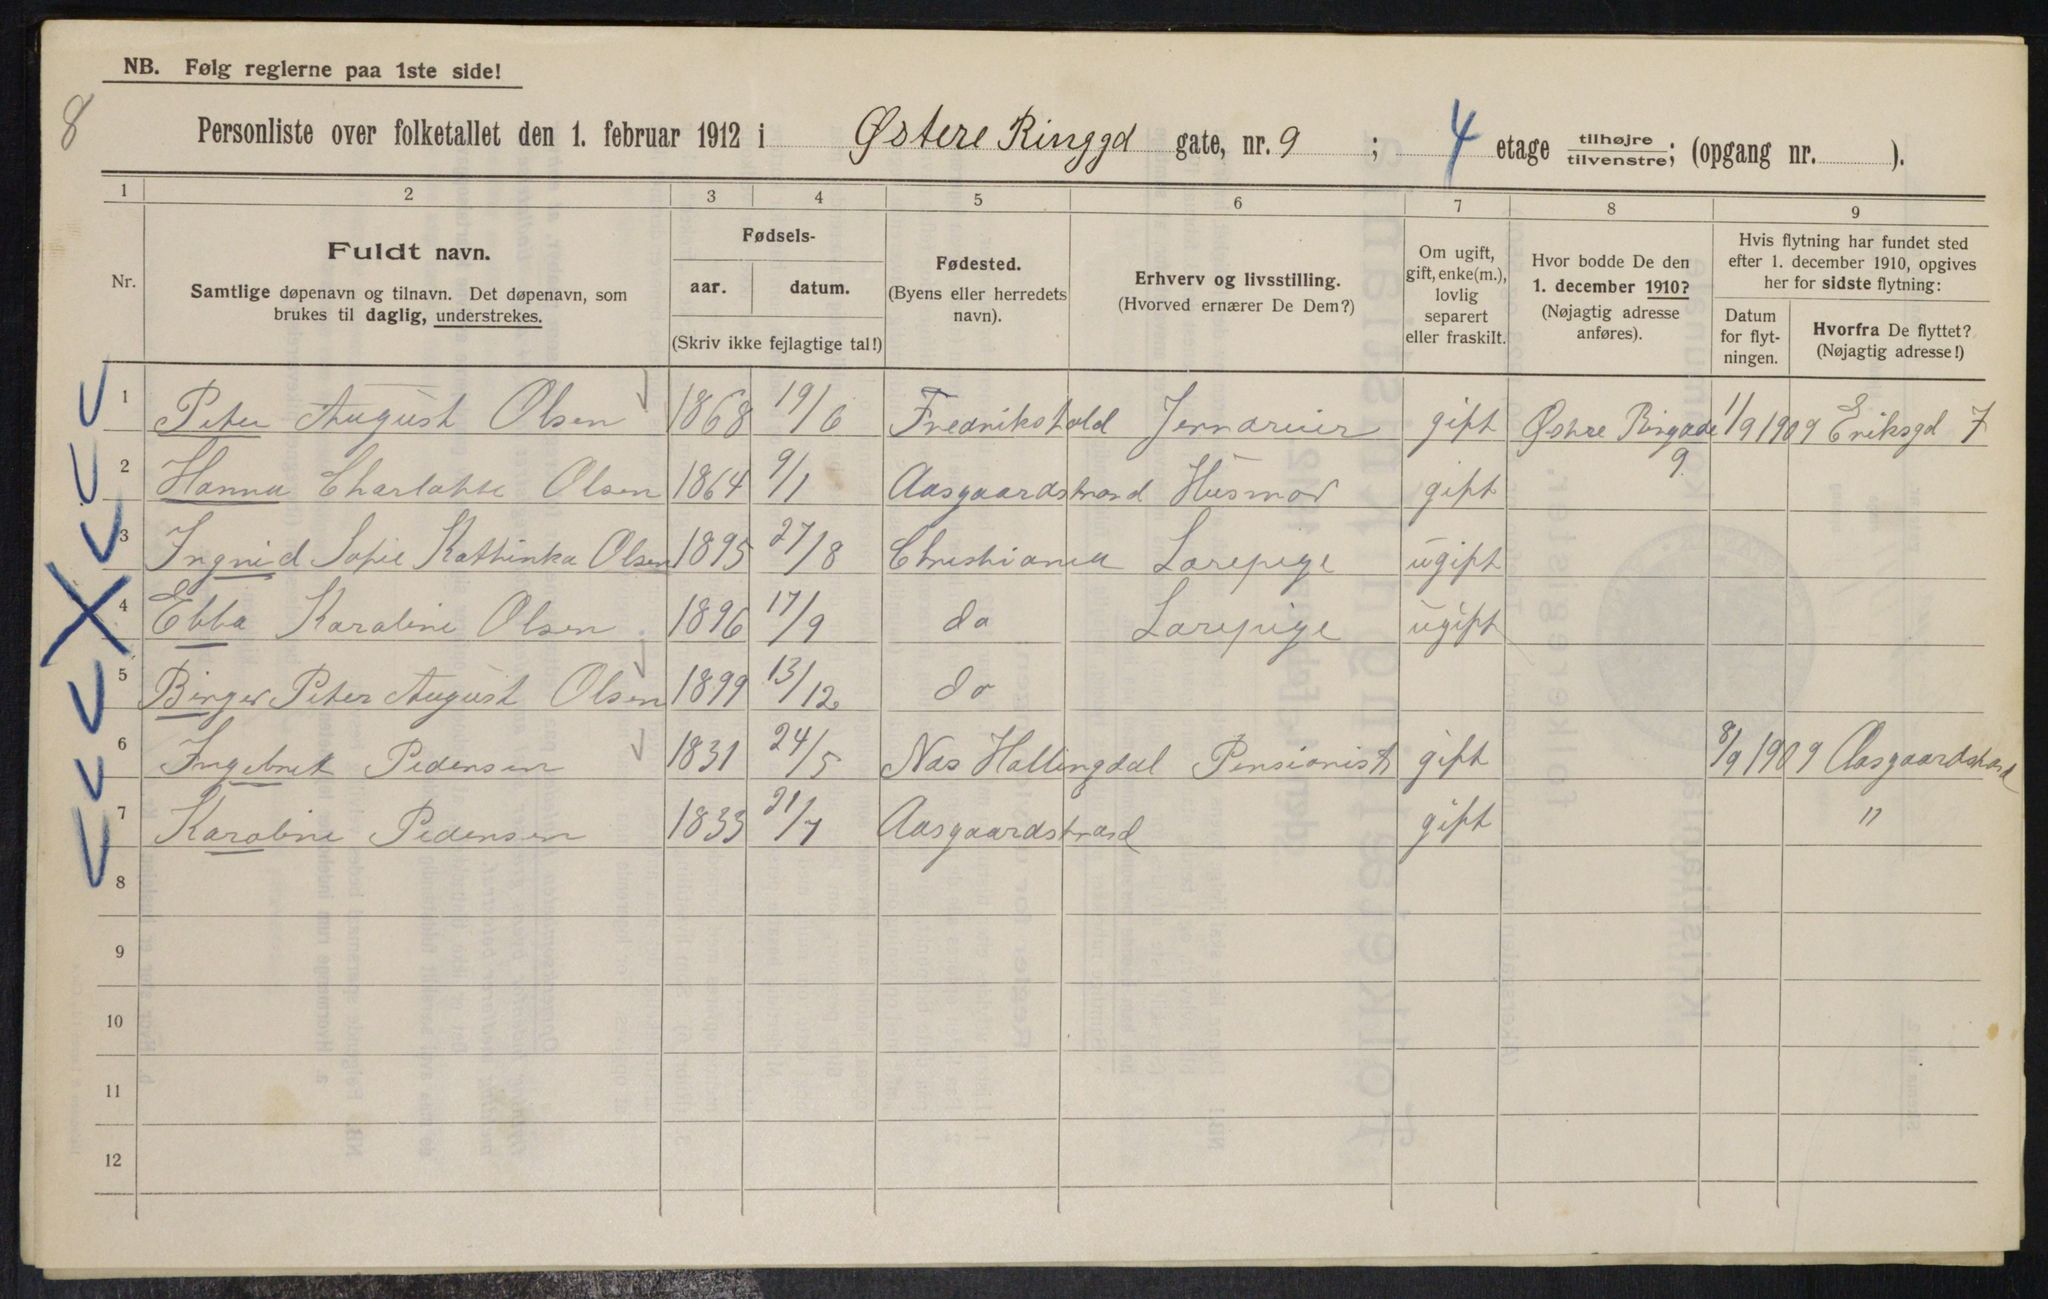 NB. Følg reglerne paa 1ste side!
8
Personliste over folketallet den 1. februar 1912 i Østere Ringgd gate, nr. 9 ; 4 etage tilhøjre/tilvenstre; (opgang nr. ).
1 2 3 4 5 6 7 8 9
Nr.
Fuldt navn.
Samtlige døpenavn og tilnavn. Det døpenavn, som
brukes til daglig, understrekes.
Fødsels-
aar. datum.
(Skriv ikke fejlagtige tal!)
Fødested.
(Byens eller herredets
navn).
Erhverv og livsstilling.
(Hvorved ernærer De Dem?)
Om ugift,
gift, enke(m.),
lovlig
separert
eller fraskilt.
Hvor bodde De den
1. december 1910?
(Nøjagtig adresse
anføres).
Hvis flytning har fundet sted
efter 1. december 1910, opgives
her for sidste flytning:
Datum
for flyt-
ningen.
Hvorfra De flyttet?
(Nøjagtig adresse!)
1 Peter August Olsen 1868 19/6 Fredrikshald gift Østre Ringade 9 1/9 1909 Eriksgd 7
2 Hanna Charlotte Olsen 1864 9/1 Aasgaardstrand Husmor gift
3 Ingrid Sofie Kathinka Olsen 1895 27/8 Christiania Lærepige ugift
4 Ebba Karoline Olsen 1896 17/9 do Lærepige ugift
5 Birger Peter August Olsen 1899 13/12 do
6 Ingebret Pedersen 1831 24/5 Næs Hallingdal Pensionist gift 8/9 1909 Aasgaardstrand
7 Karoline Pedersen 1833 21/7 Aasgaardstrand gift "
8
9
10
11
12